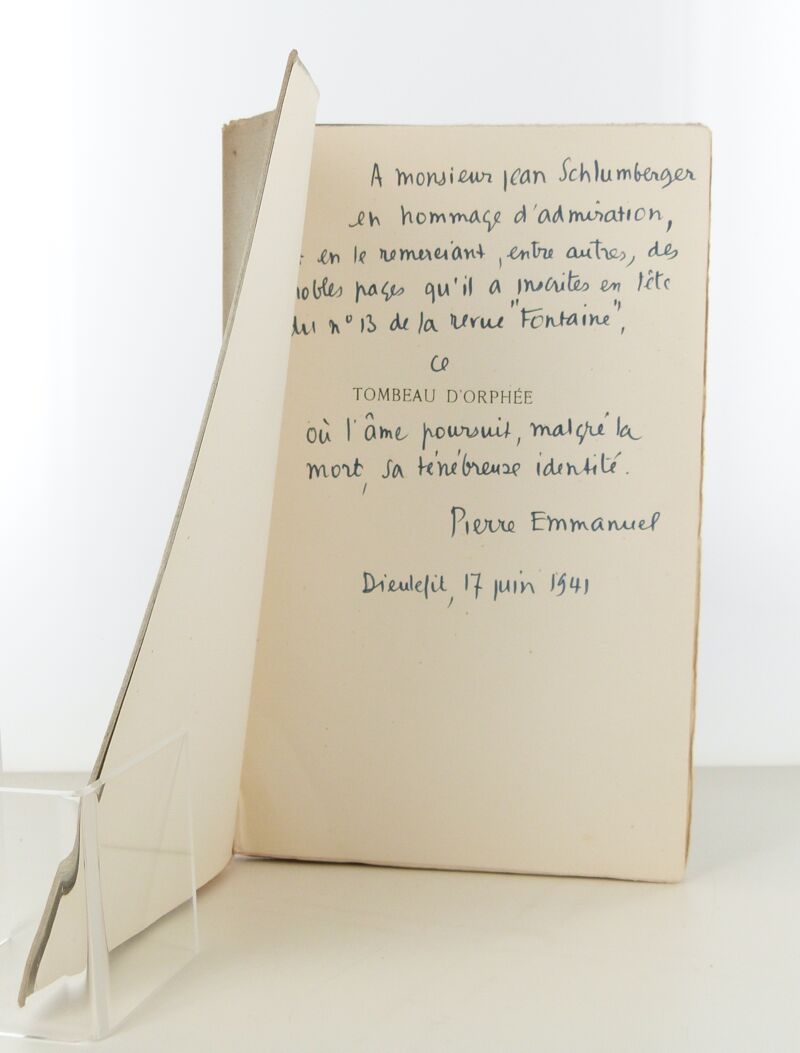 A monsieur jean Schlumberger
en hommage d'admiration,
en le remerciant, entre autres, des
nobles pages qu'il a inscrites en tête
du n° 13 de la revue "Fontaine",
ce
TOMBEAU D'ORPHÉE
où l'âme poursuit, malgré la
mort, sa ténébreuse identité.
Pierre Emmanuel
Dieulefit, 17 juin 1941